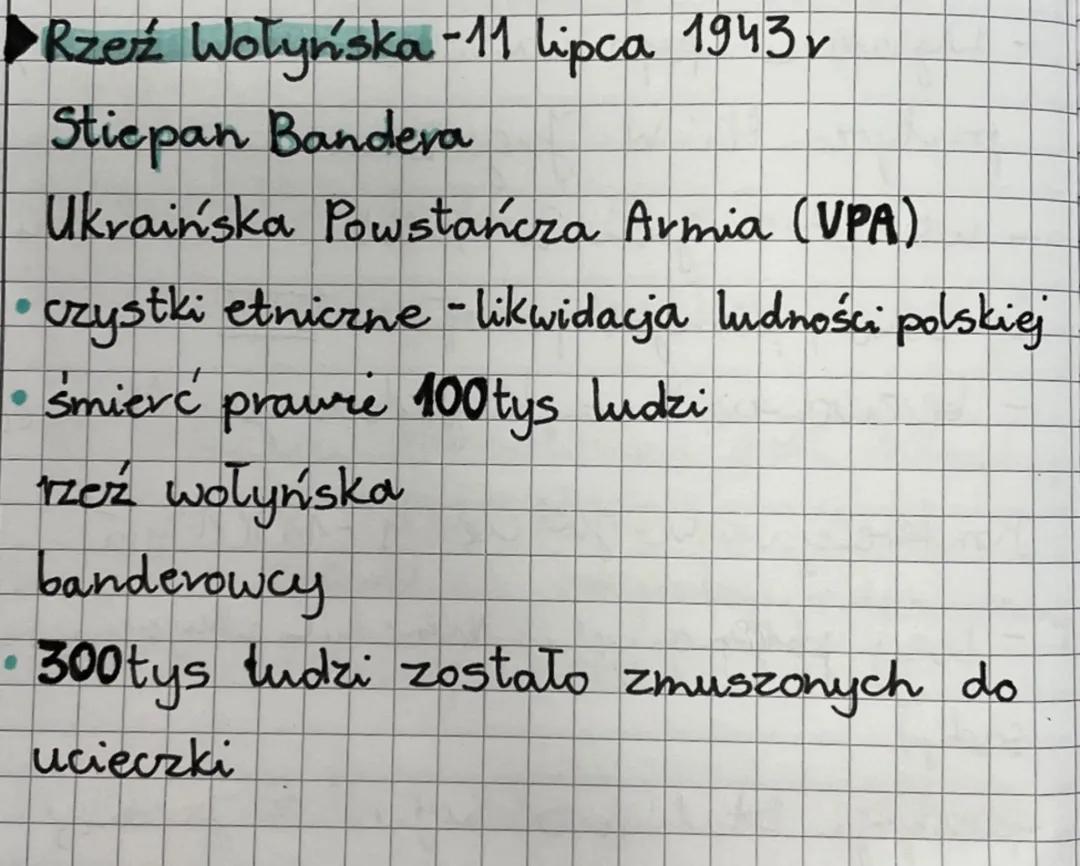 Rzeź Wołyńska - 11 lipca 1943 r
Stiepan Bandera
Ukraińska Powstańcza Armia (UPA)
• czystki etniczne - likwidacja ludności polskiej
• śmierć prawie 100tys ludzi
rzeź wołyńska
banderowcy
• 300tys ludzi zostało zmuszonych do
ucieczki